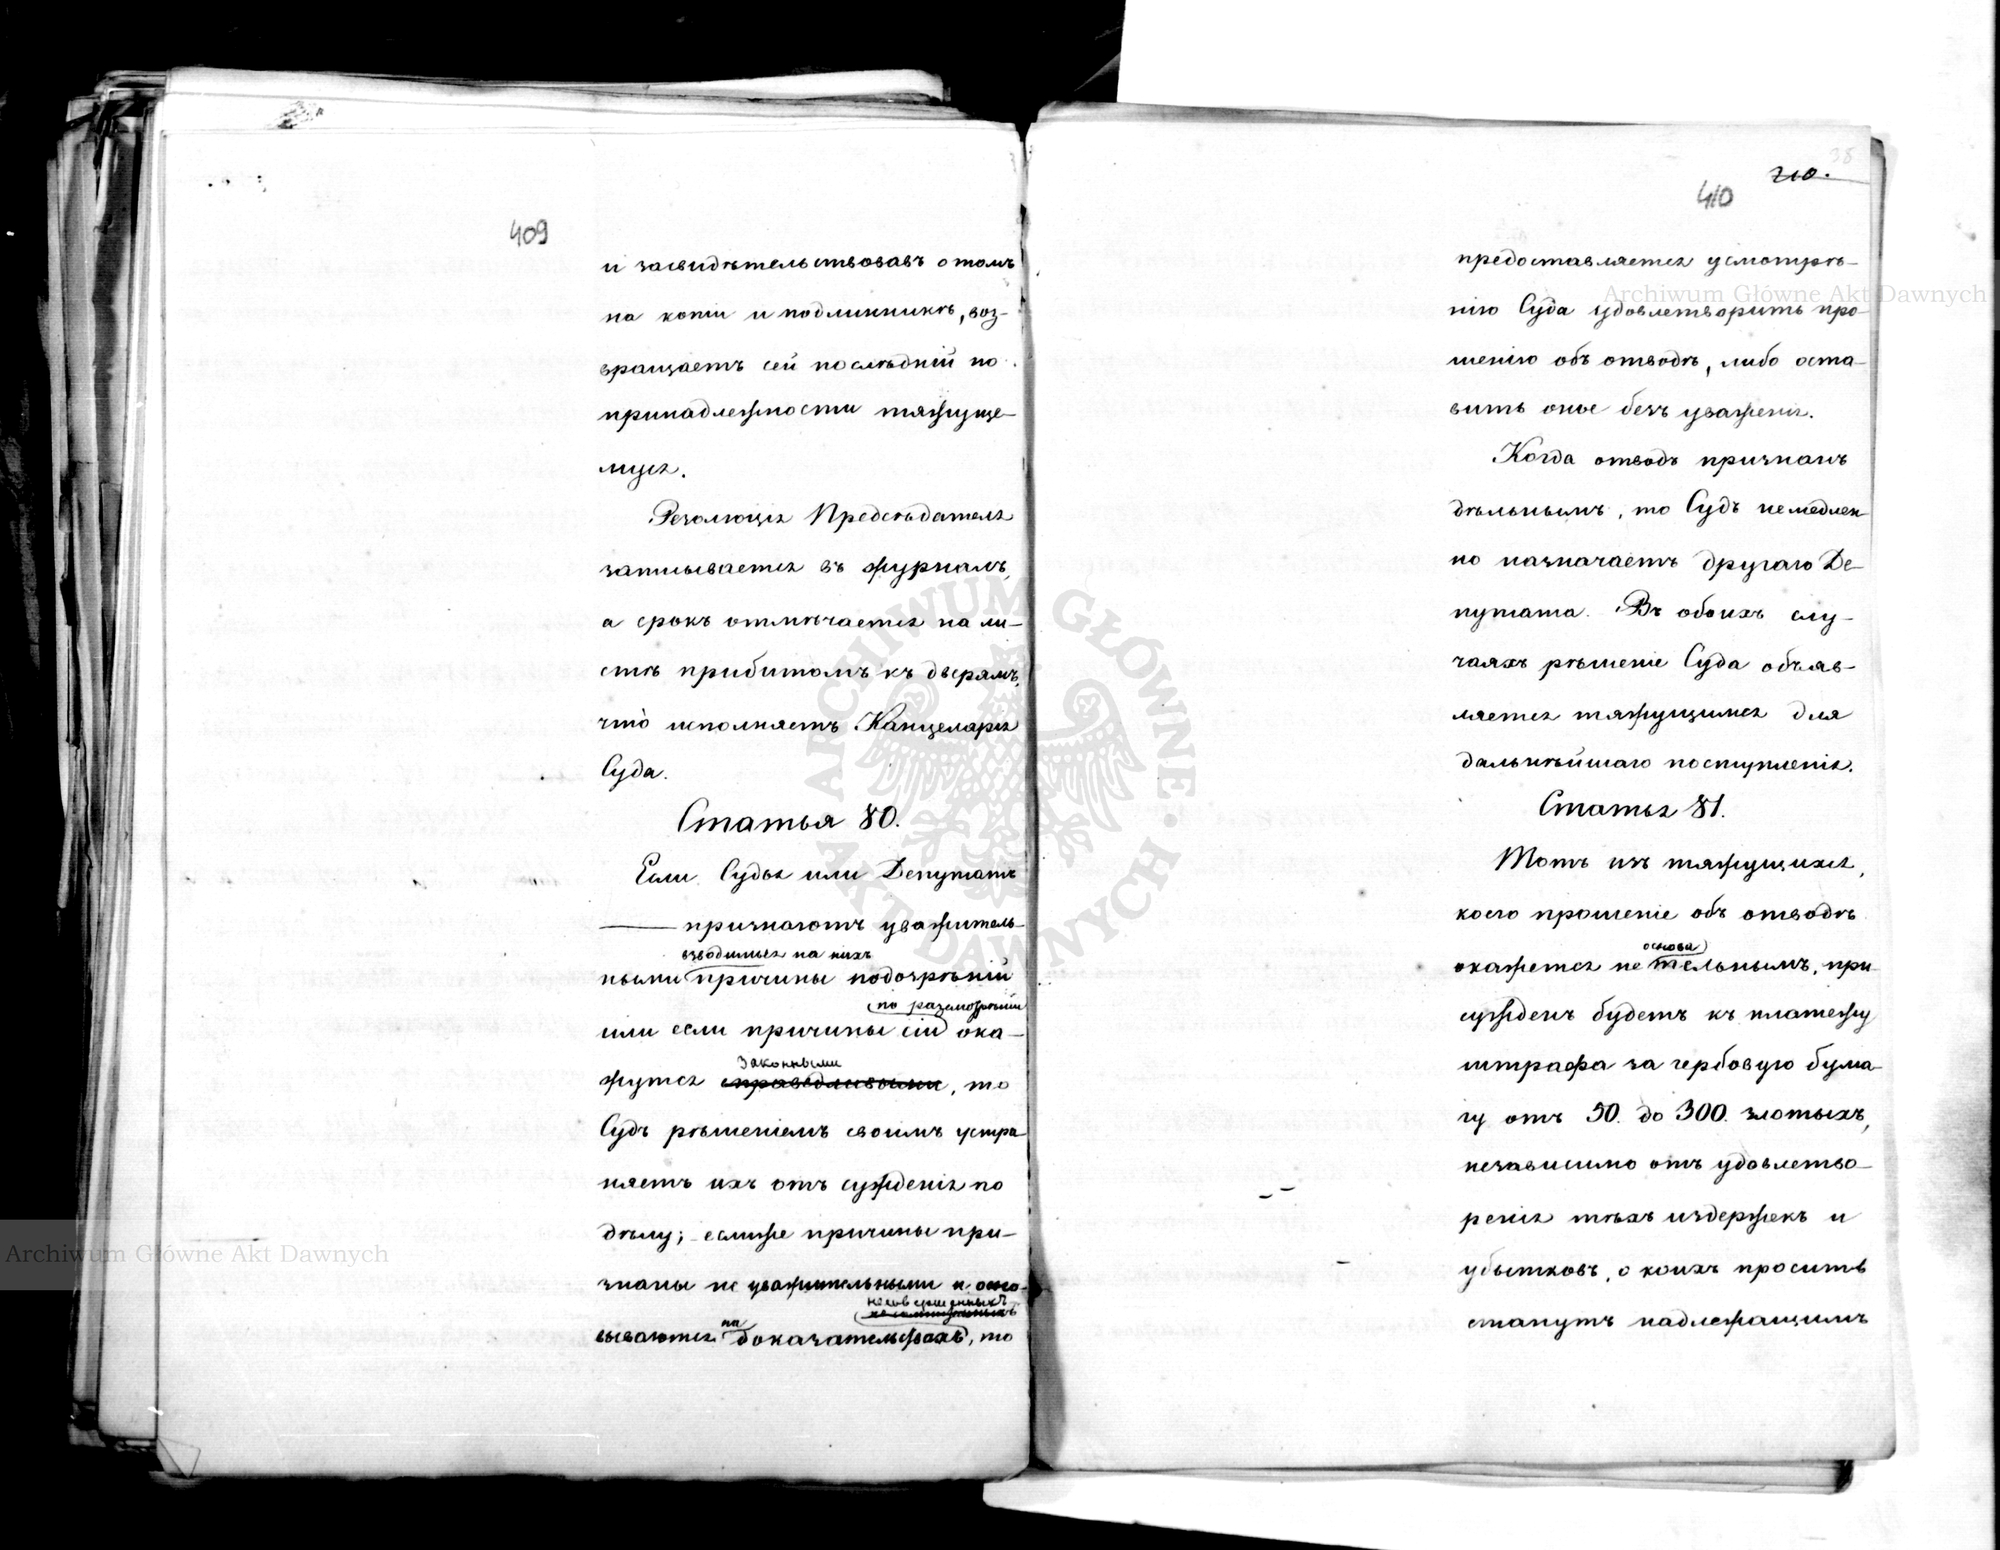 409
и засвидѣтельствовавъ о томъ
на копіи и подлинникѣ, воз-
вращаетъ сей послѣдній по
принадлежности тяжуще-
муся.
Резолюція Предсѣдателя
записывается въ журналъ,
а срокъ отмѣчается на ли-
стѣ прибитомъ къ дверямъ,
что исполняетъ Канцелярія
Суда.
Статья 80.
Если Судья или Депутатъ
признаютъ уважитель-
взводимыя на нихъ
ными причины подозрѣній
по разсмотрѣніи
или если причины сіи ока-
Законными
жутся справедливыми, то
Судъ рѣшеніемъ своимъ устра
няетъ ихъ отъ сужденія по
дѣлу; еслиже причины при-
знаны не уважительными и осно-
несовершенныхъ
на
вываются доказательствахъ, то
38
210.
410
предоставляется усмотрѣ-
нію Суда удовлетворить про-
шенію объ отводѣ, либо оста-
вить оное безъ уваженія.
Когда отводъ признанъ
дѣльнымъ, то Судъ немедлен
но назначаетъ другаго Де-
путата. Въ обоихъ слу-
чаяхъ рѣшеніе Суда объяв-
ляется тяжущимся для
дальнѣйшаго поступленія.
Статья 81.
Тотъ изъ тяжущихся,
коего прошеніе объ отводѣ
основа
окажется не тельнымъ, при
сужденъ будетъ къ платежу
штрафа за гербовую бума-
гу отъ 50. до 300. злотыхъ,
независимо отъ удовлетво-
ренія тѣхъ издержекъ и
убытковъ, о коихъ просить
станутъ надлежащимъ
Archiwum Główne Akt Dawnych
Archiwum Główne Akt Dawnych
ARCHIWUM GŁÓWNE AKT DAWNYCH